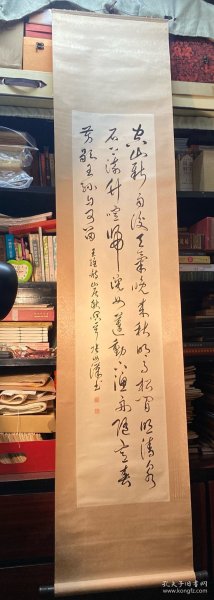 空山新雨後天氣晚來秋明月松間照清泉
石上流竹喧歸浣女蓮動下漁舟隨意春
芳歇王孫自可留 王維詩山居秋暝
书
孔夫子旧书网
kongfz.com